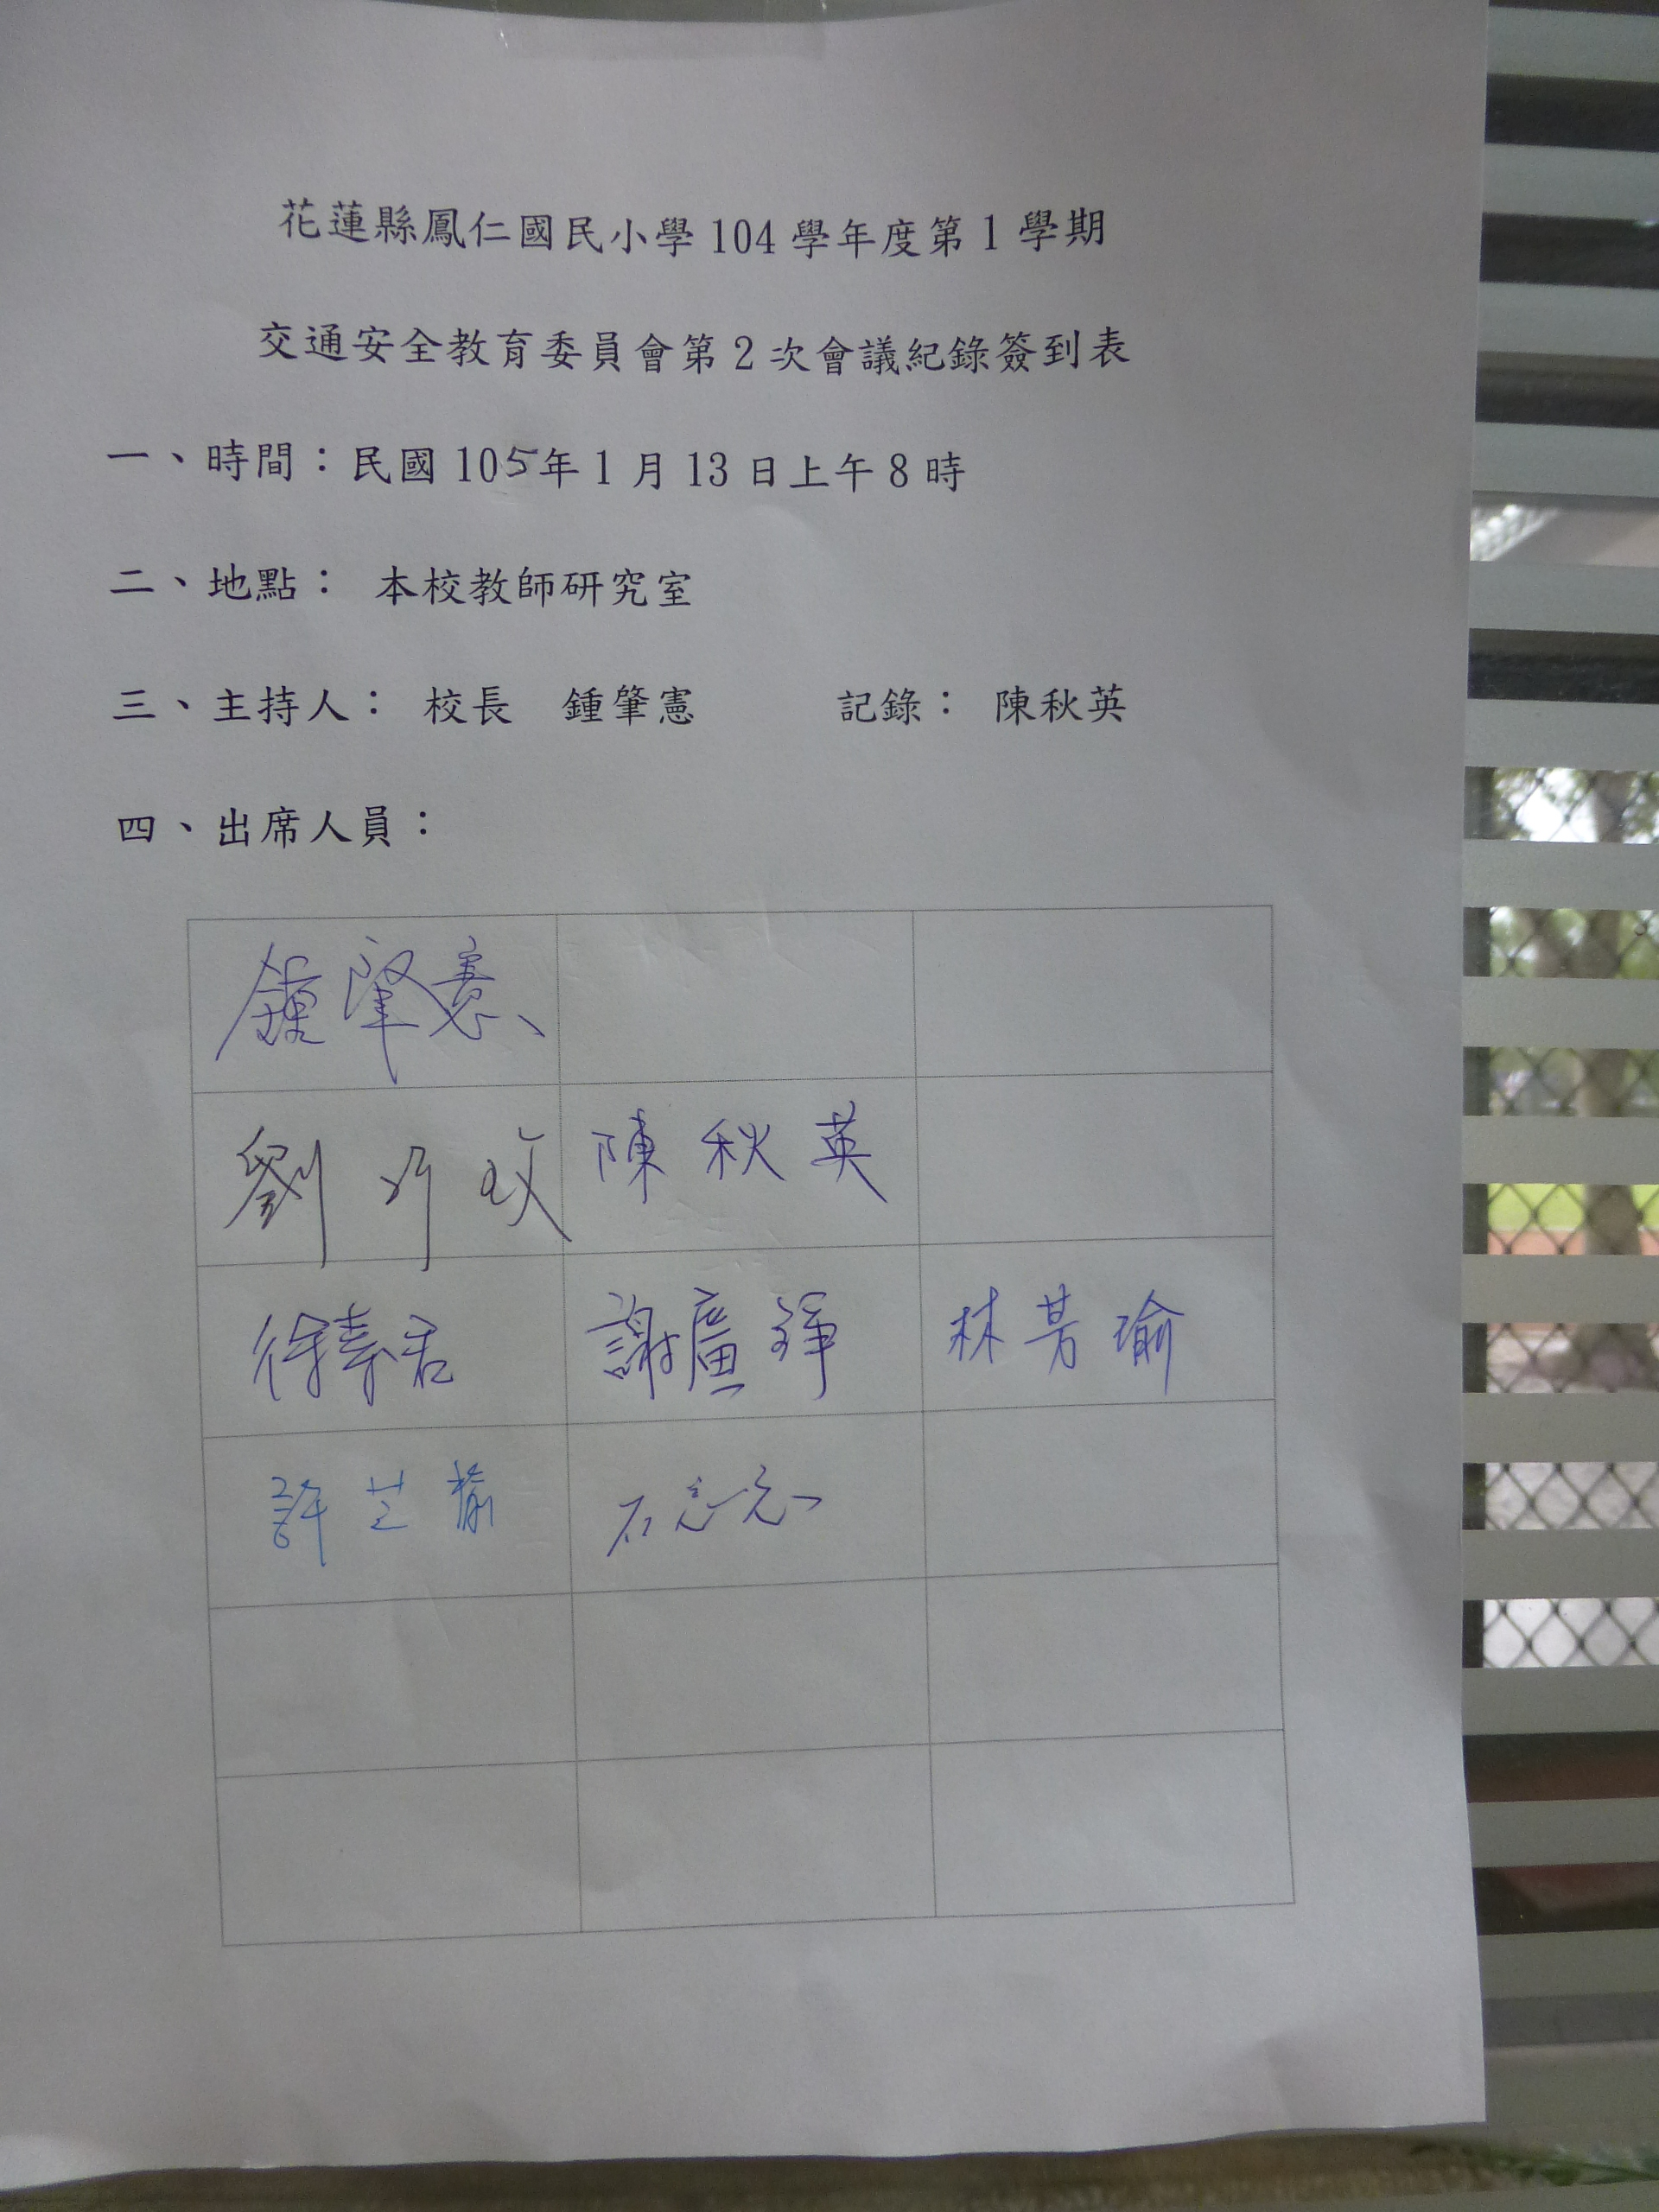 花蓮縣鳳仁國民小學 104 學年度第 1 學期
交通安全教育委員會第 2 次會議紀錄簽到表
一、時間：民國 105 年 1 月 13 日上午 8 時
二、地點： 本校教師研究室
三、主持人： 校長 鍾肇憲 記錄： 陳秋英
四、出席人員：
鍾肇憲
劉 陳秋英
徐壽君 謝廣錚 林芳瑜
許芝榆 石